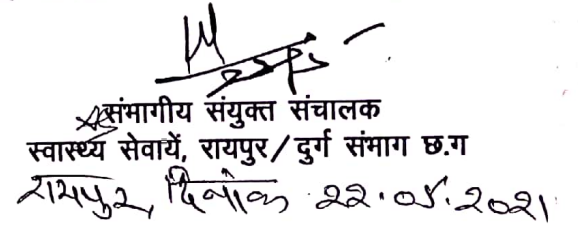 संभागीय संयुक्त संचालक
स्वास्थ्य सेवायें, रायपुर/दुर्ग संभाग छ.ग
रायपुर, दिनांक 22.05.2021